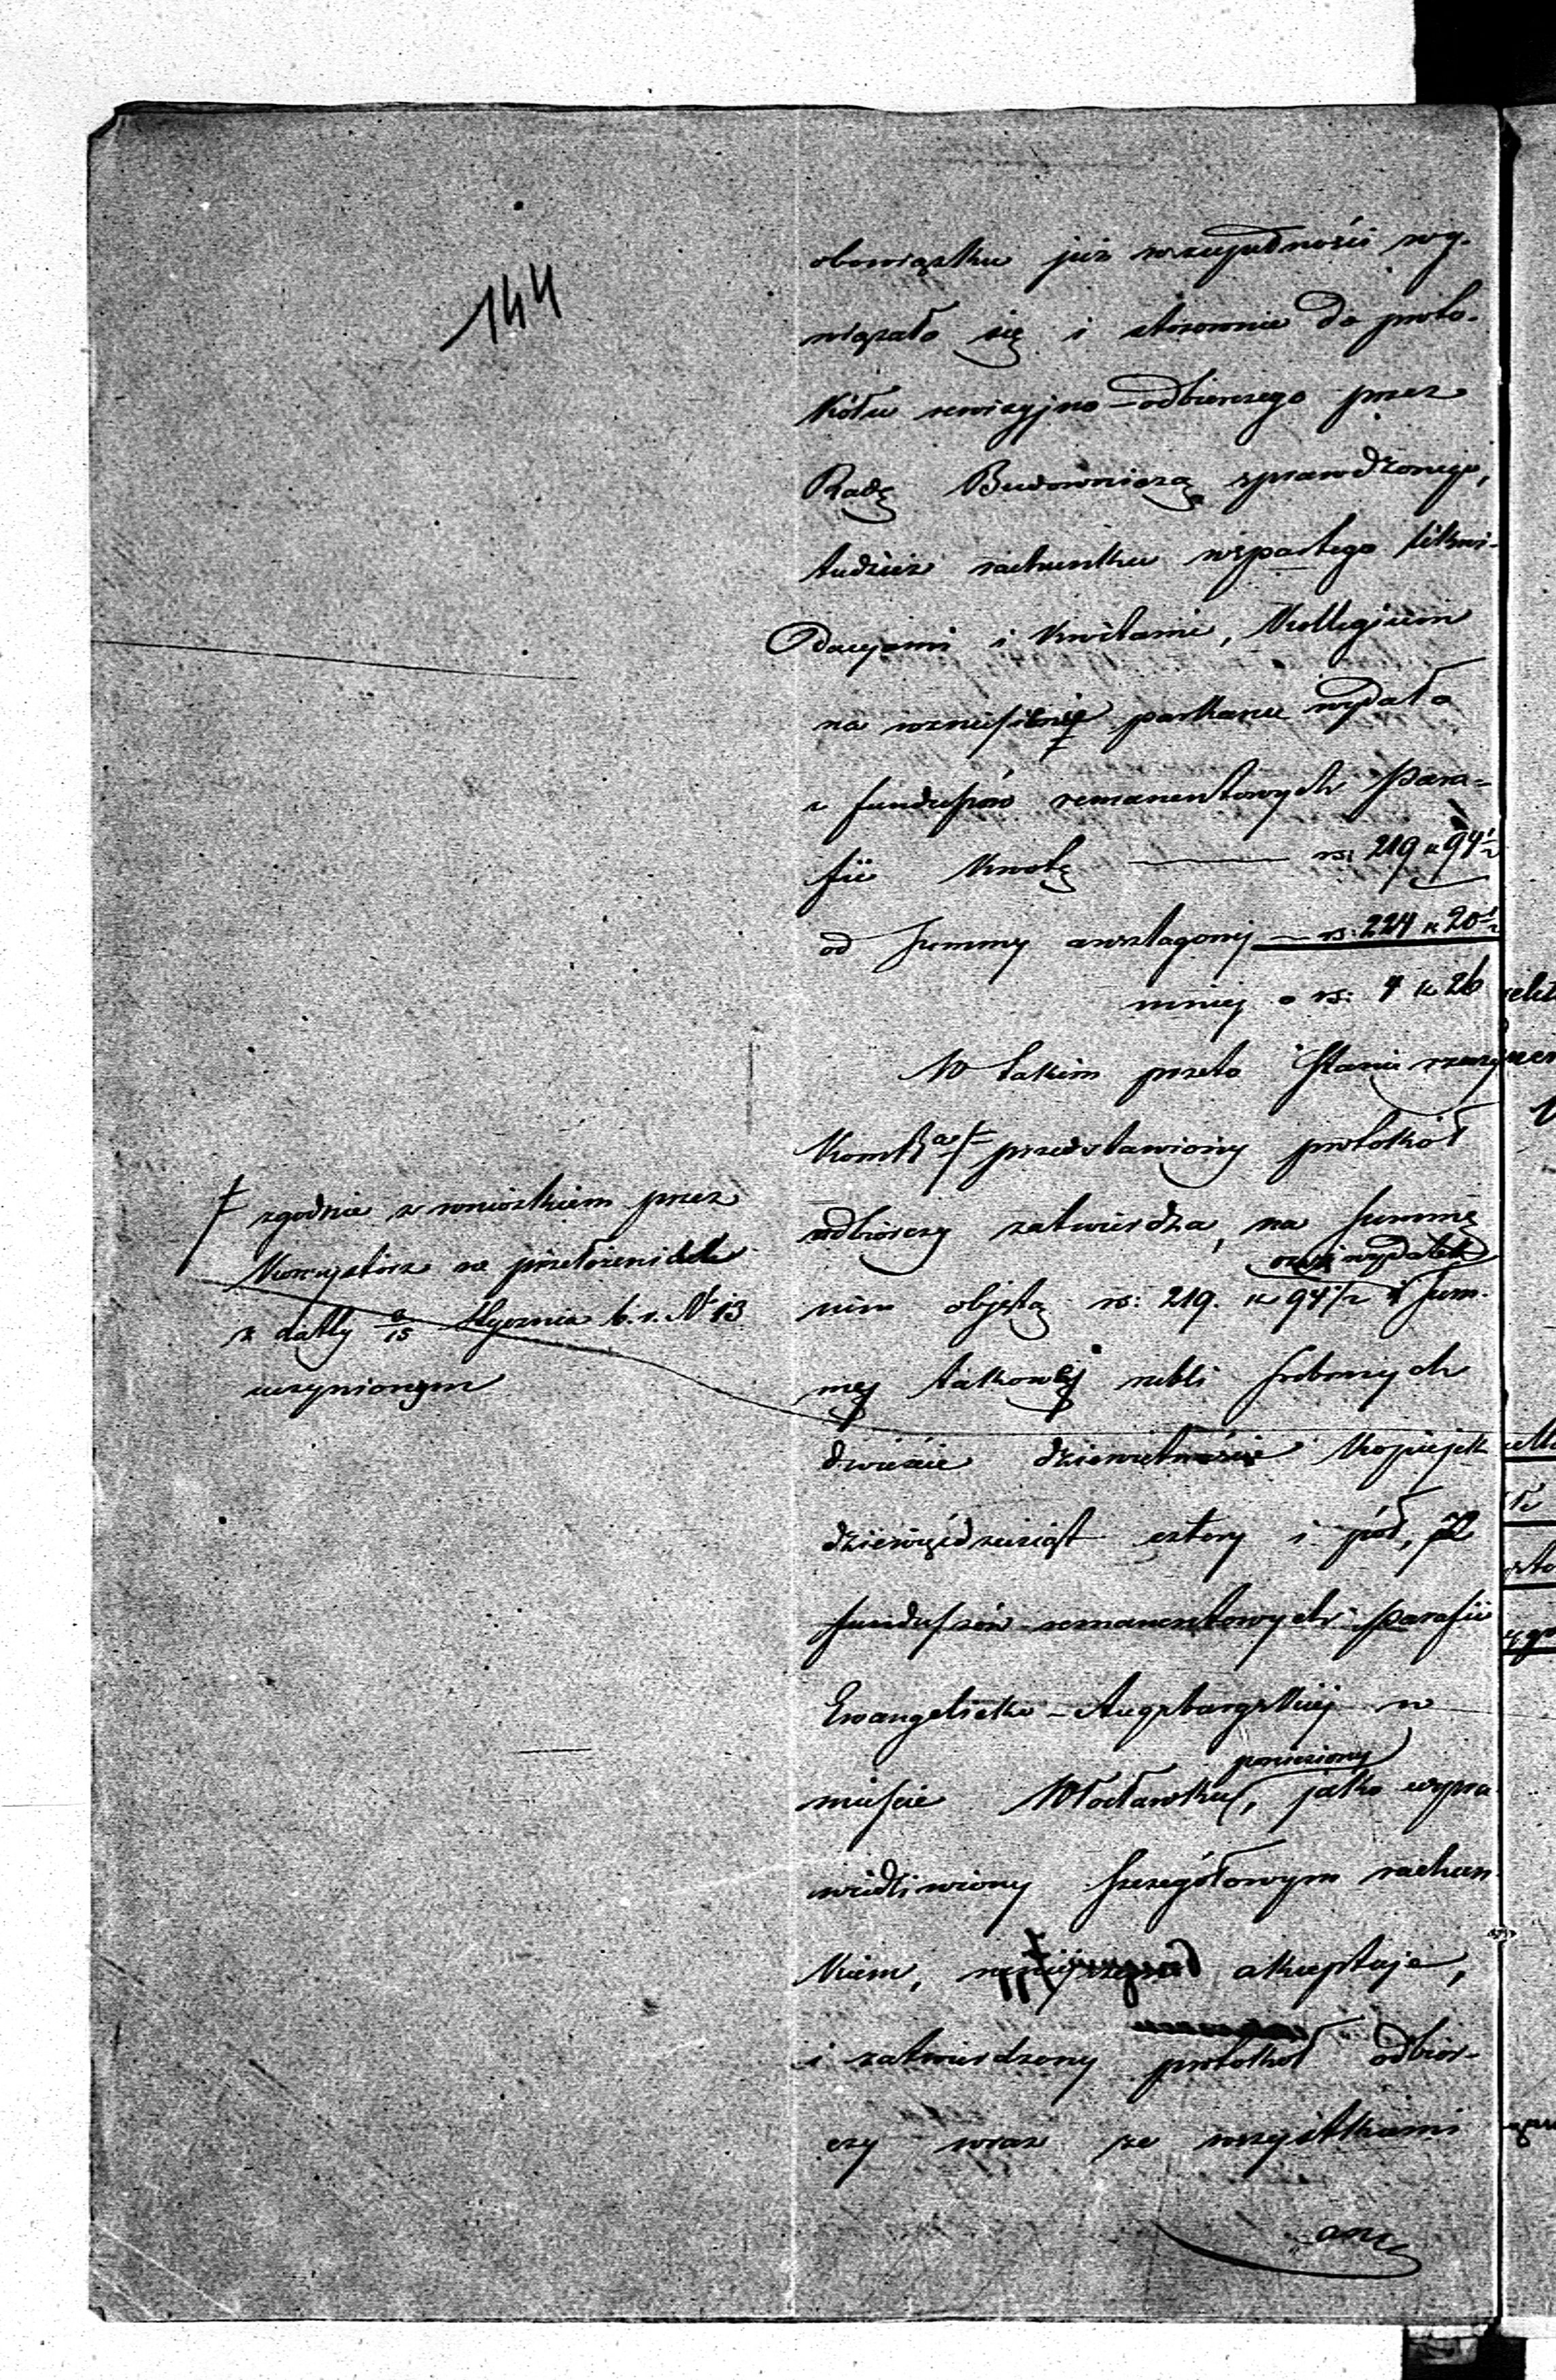 144
obowiązku już w zupełności wy-
wiązało się i stosownie do proto-
kółu rewizyjno-odbiorczego przez
Radę Budowniczą sprawdzonego,
tudzież rachunku wspartego likwi-
dacyami i kwitami, Kollegium
na wzniesienie parkanu wydało
z funduszów remanentowych Para-
fii kwotę rs: 219 k 94 1/2
od summy anszlagowej rs: 224 k 20 1/2
mniej o rs: 4 k 26
W takim przeto stanie rzeczy
przedstawiony protokół
odbiorczy zatwierdza, na summę
oraz wydatek
nim objętą rs: 219. k 94 1/2 w sum-
takowej rubli srebrnych
dwieście dziewiętnaście kopiejek
dziewięćdziesiąt cztery i pół, z
funduszów remanentowych Parafii
Ewangelicko-Augsburgskiej w
poniesiony
mieście Włocławku, jako uspra-
wiedliwiony szczegółowym rachun-
kiem, akceptuje,
i zatwierdzony protokół odbior-
czy wraz ze wszystkiemi
zgodnie z wnioskiem przez
Konsystorz na przełożeniu
z daty 3/15 Stycznia b. r. N 13
uczynionym